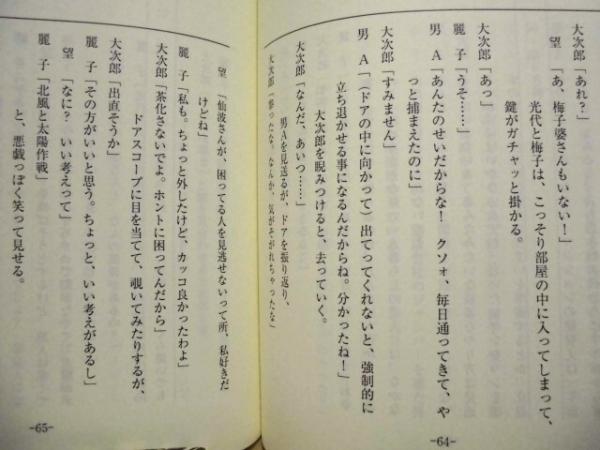 大次郎「あれ？」
望　「あ、梅子婆さんもいない！」
光代と梅子は、こっそり部屋の中に入ってしまって、
鍵がガチャッと掛かる。
大次郎「あっ」
麗　子「うそ……」
男　A「あんたのせいだからな！　クソォ、毎日通ってきて、や
っと捕まえたのに」
大次郎「すみません」
男　A「（ドアの中に向かって）出てってくれないと、強制的に
立ち退かせる事になるんだからね。分かったね！」
大次郎を睨みつけると、去っていく。
大次郎「なんだ、あいつ……」
男Aを見送るが、ドアを振り返り、
大次郎「参ったな。なんか、気がそがれちゃったな」
-64-
望　「仙波さんが、困ってる人を見逃せないって所、私好きだ
けどね」
麗　子「私も。ちょっと外したけど、カッコ良かったわよ」
大次郎「茶化さないでよ。ホントに困ってんだから」
ドアスコープに目を当てて、覗いてみたりするが、
大次郎「出直そうか」
麗　子「その方がいいと思う。ちょっと、いい考えがあるし」
望　「なに？　いい考えって」
麗　子「北風と太陽作戦」
と、悪戯っぽく笑って見せる。
-65-